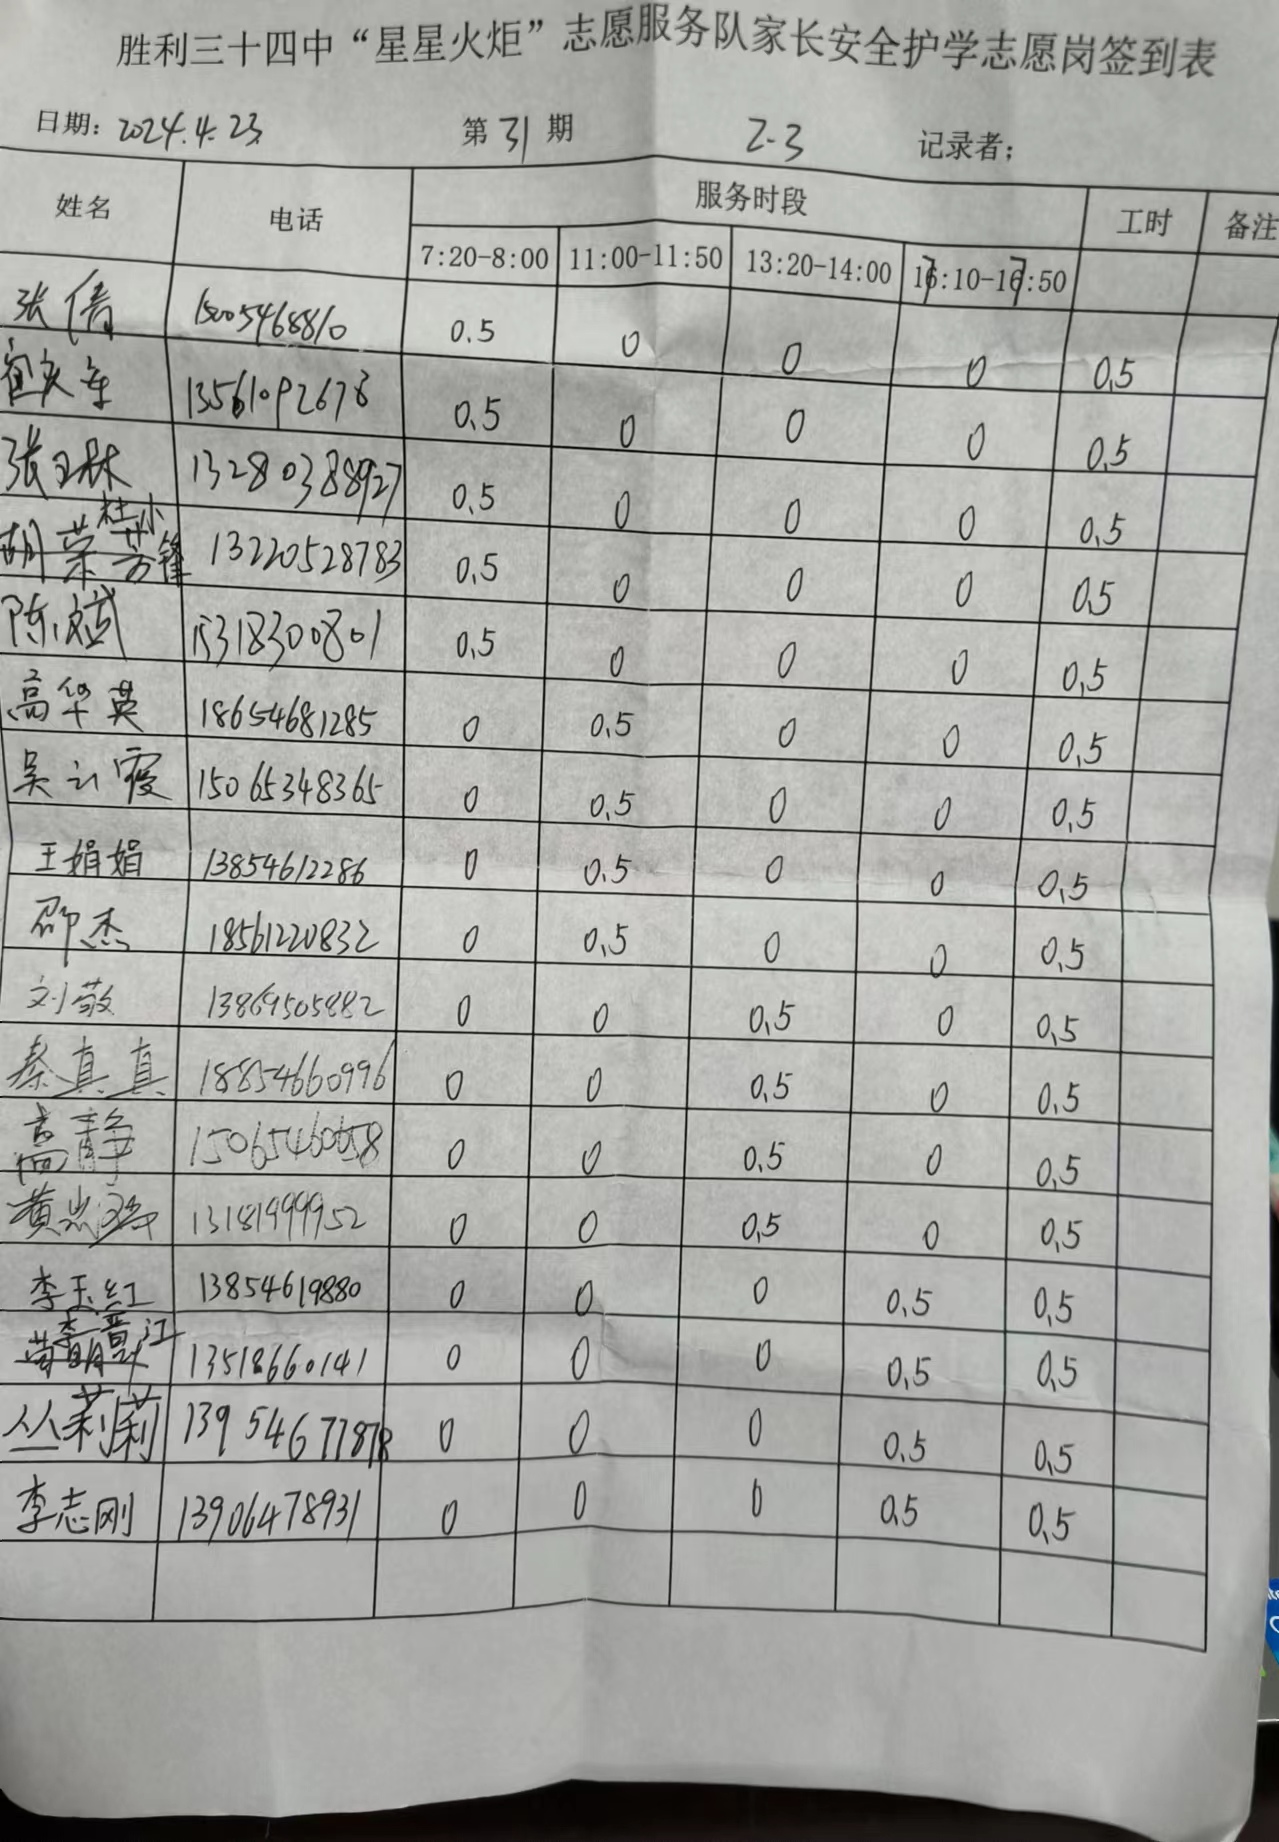 胜利三十四中“星星火炬”志愿服务队家长安全护学志愿岗签到表
日期: 2024.4.23. 第 31 期 2-3 记录者;
姓名 电话 服务时段 工时 备注
7:20-8:00 11:00-11:50 13:20-14:00 17:10-17:50
张倩 15005468810 0.5 0 0 0 0.5
13561092678 0.5 0 0 0 0.5
张玉林 13280388927 0.5 0 0 0 0.5
杜小锋 13220528783 0.5 0 0 0 0.5
陈斌 15318300801 0.5 0 0 0 0.5
高华英 18654681285 0 0.5 0 0 0.5
吴云霞 15065348365 0 0.5 0 0 0.5
王娟娟 13854612286 0 0.5 0 0 0.5
邵杰 18561220832 0 0.5 0 0 0.5
刘敬 13869505882 0 0 0.5 0 0.5
秦真真 18854660996 0 0 0.5 0 0.5
高静 15065460658 0 0 0.5 0 0.5
黄 13181999952 0 0 0.5 0 0.5
李玉红 13854619880 0 0 0 0.5 0.5
李晋江 13518660141 0 0 0 0.5 0.5
丛莉莉 13954677878 0 0 0 0.5 0.5
李志刚 13906478931 0 0 0 0.5 0.5